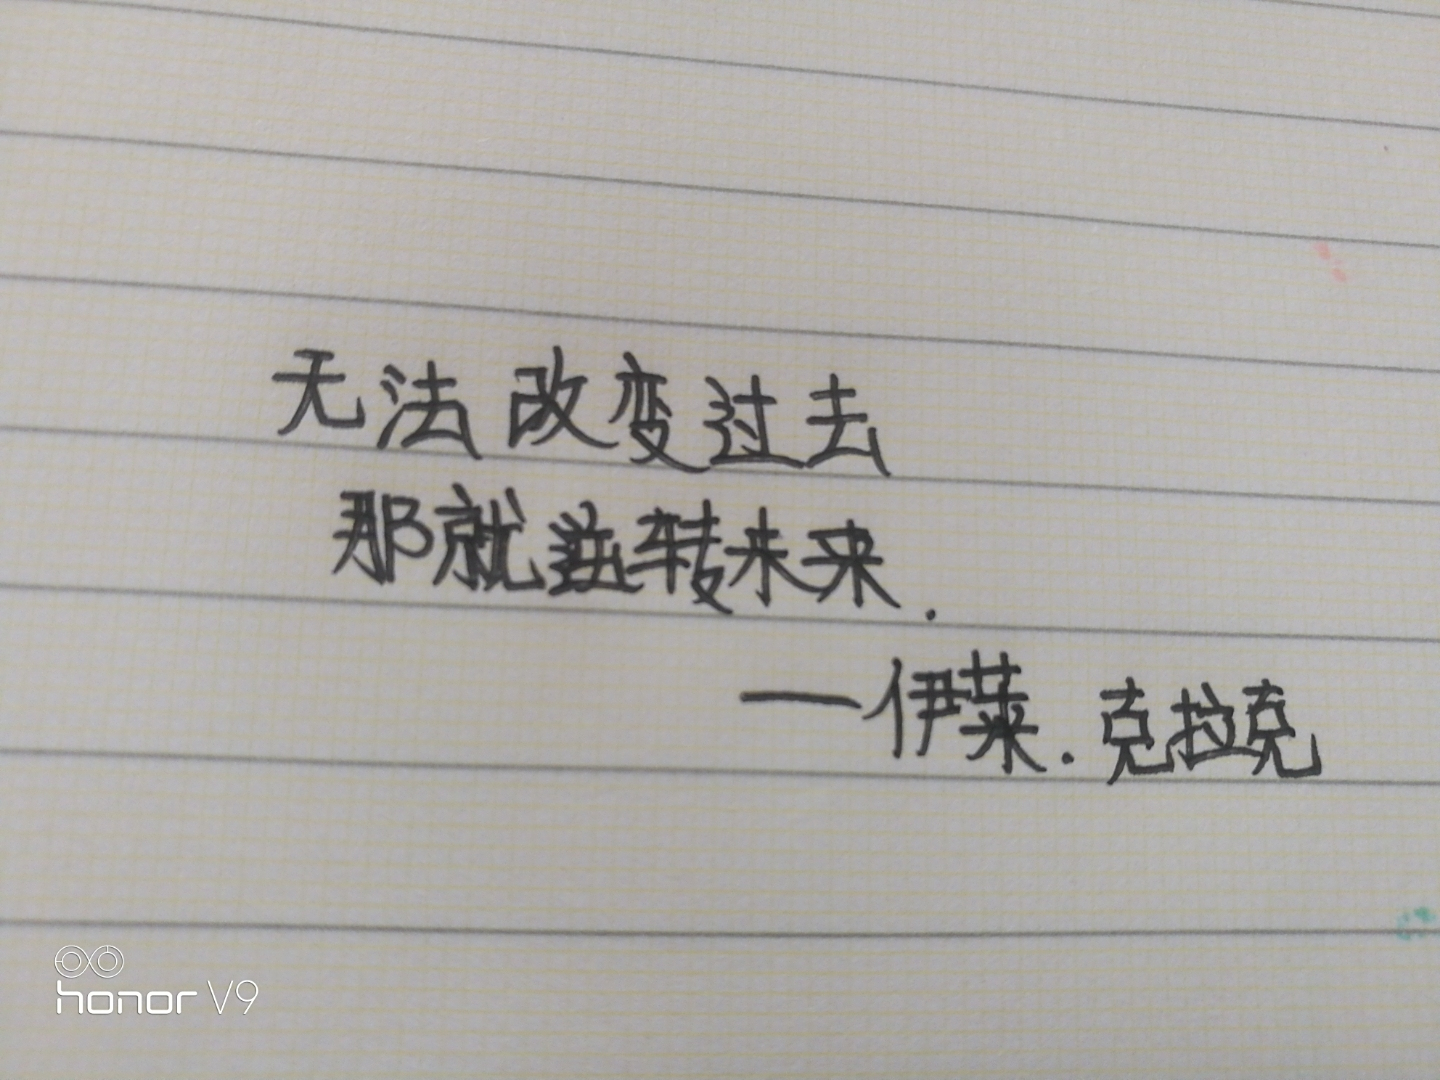 无法改变过去
那就逆转未来.
—伊莱.克拉克
honor V9